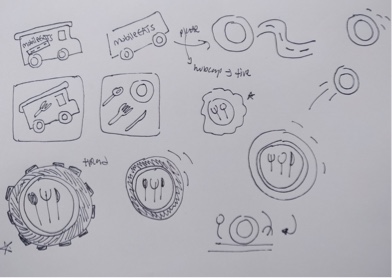 mobile eats
mobile eats
plate
hubcap → tire
tread